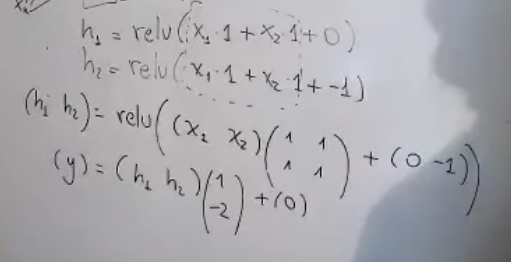 h₁ = relu(x₁·1 + x₂·1 + 0)
h₂ = relu(x₁·1 + x₂·1 + -1)
(h₁ h₂) = relu((x₁ x₂)(1 1 1 1) + (0 -1))
(y) = (h₁ h₂)(1 -2) + (0)